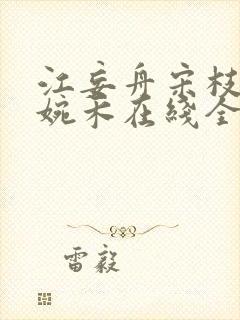 江妄舟宋枝
婉未在线全
雷毅